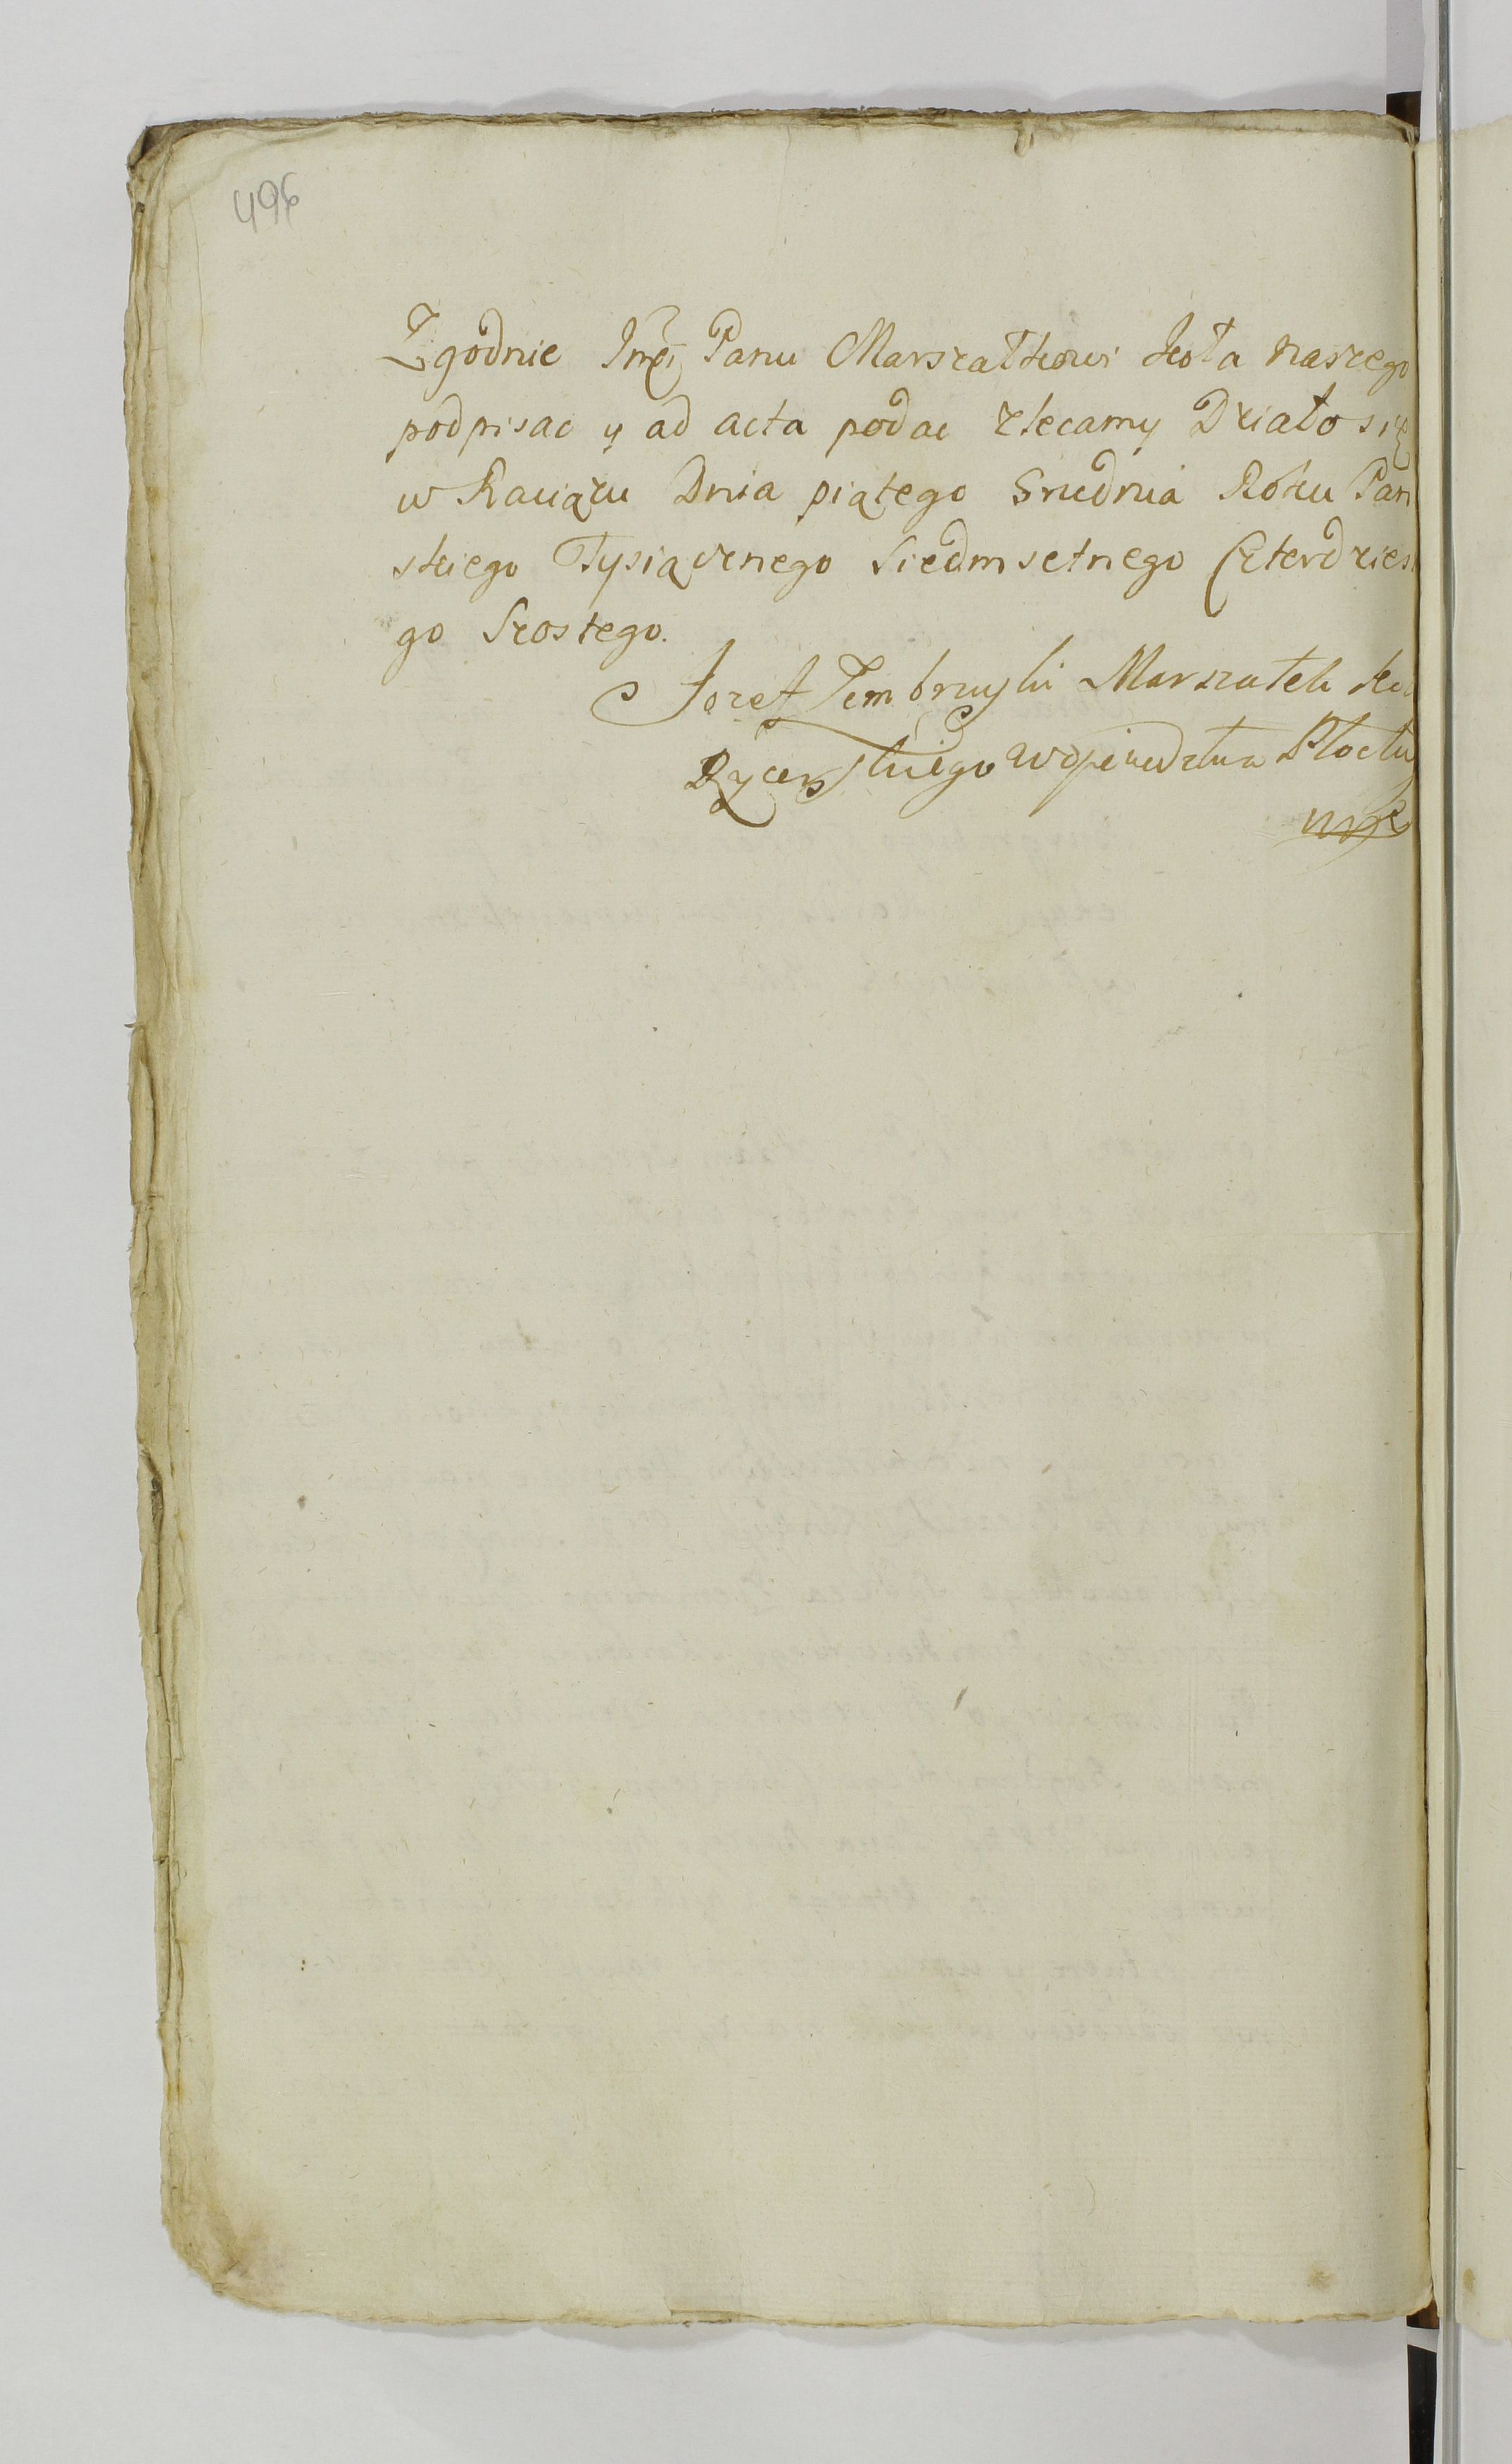 496
Zgodnie Jmći Panu Marszałkowi koła naszego
podpisac y ad acta podac zlecamy Działo się
w Raciązu Dnia piątego Grudnia Roku Pan
skiego Tysiącznego Siedmsetnego Czterdzies
go Szostego.
Jozef Zembrzuski Marszałek Ko
Rycerskiego Wojewodztwa Płockie
mpp